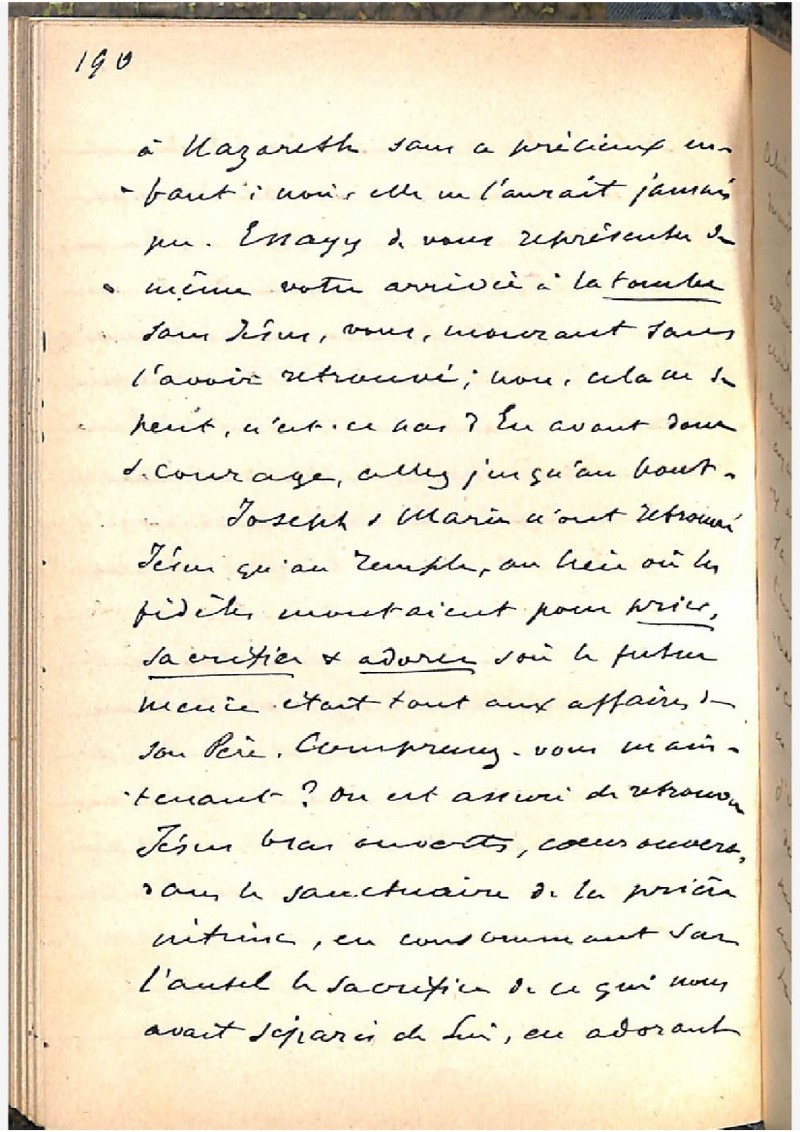 190
à Nazareth sans ce précieux en-
fant ; non, elle ne l'aurait jamais
pu. Essayez de vous représenter de
même votre arrivée à la tombe
sans Jésus, vous, mourant sans
l'avoir retrouvé ; non, cela ne se
peut, n'est-ce pas ? En avant donc
& courage, allez jusqu'au bout.
Joseph & Marie n'ont retrouvé
Jésus qu'au Temple, au lieu où les
fidèles montaient pour prier,
sacrifier & adorer où le futur
était tout aux affaires de
son Père. Comprenez-vous main-
tenant ? On est assuré de retrouver
Jésus bras ouverts, cœur ouvert,
dans le sanctuaire de la prière
intime, en consommant sur
l'autel le sacrifice de ce qui nous
avait séparés de Lui, en adorant